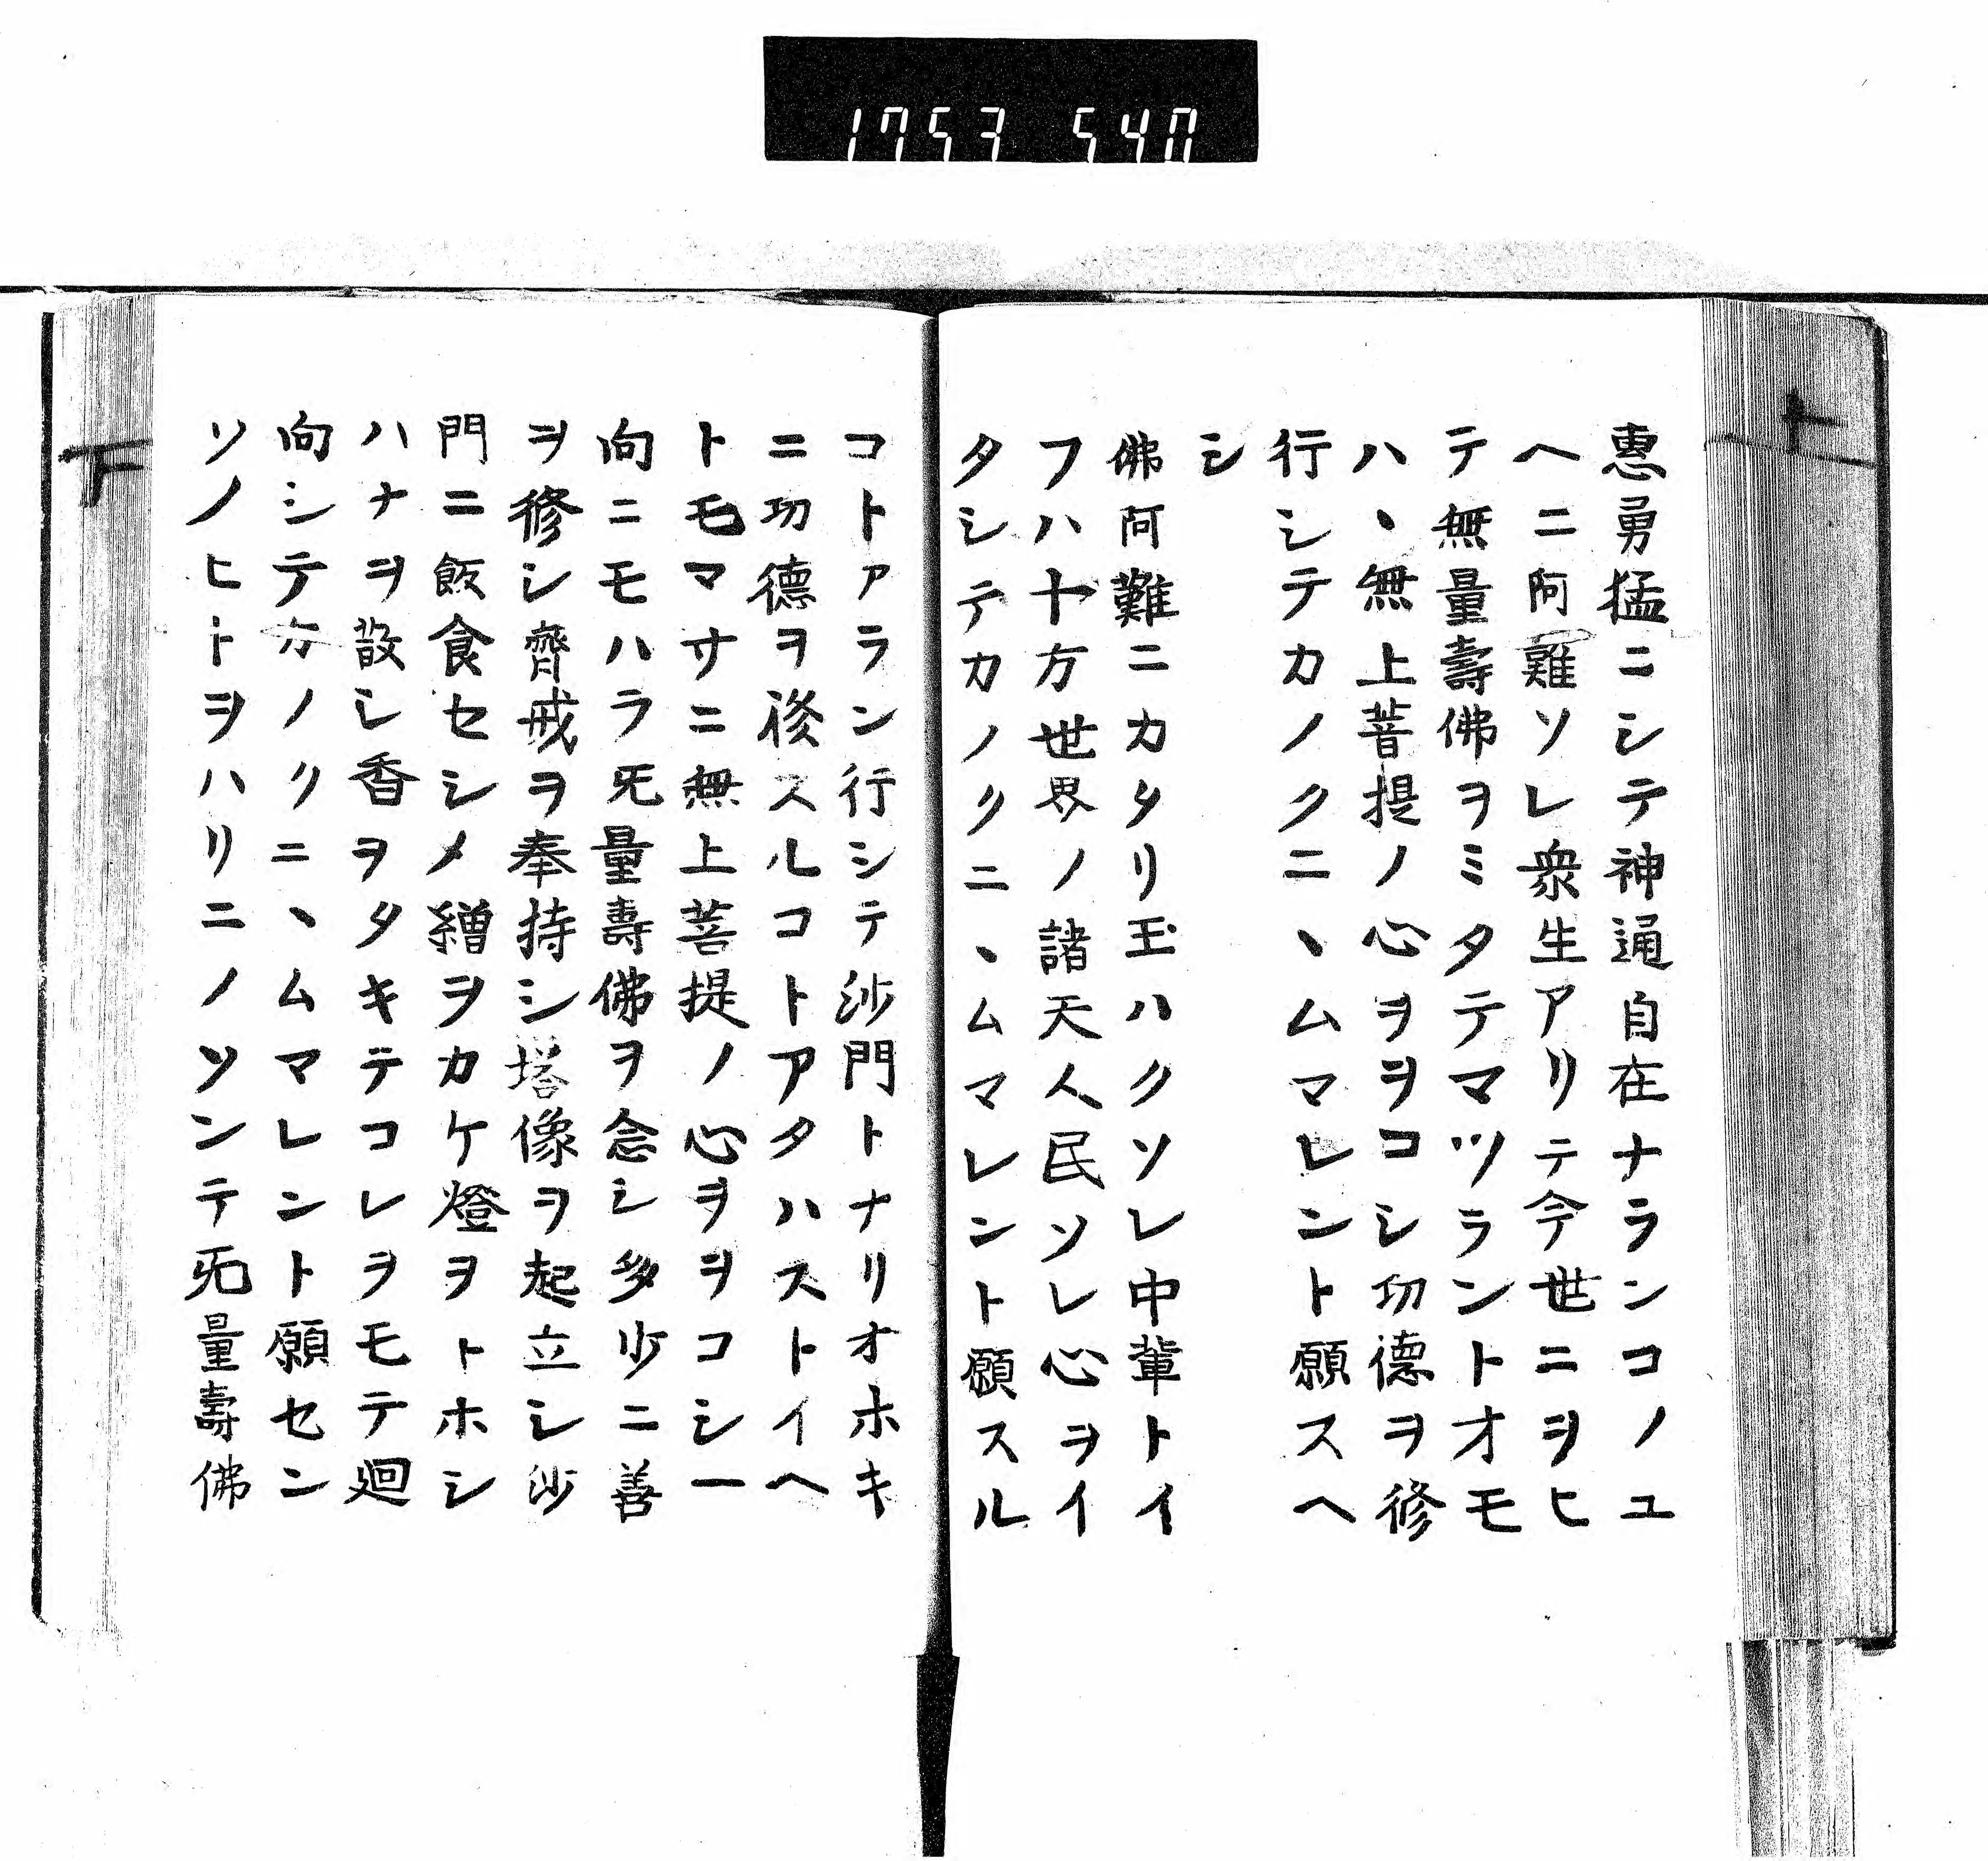 1753 540
上
惠勇猛ニシテ神通自在ナランコノユ
ヘニ阿難ソレ衆生アリテ今世ニヲヒ
テ無量壽佛ヲミタテマツラントオモ
ハヽ無上菩提ノ心ヲヲコシ功德ヲ修
行シテカノクニヽムマレント願スヘ
シ
佛阿難ニカタリ玉ハクソレ中輩トイ
フハ十方世界ノ諸天人民ソレ心ヲイ
タシテカノクニヽムマレント願スル
コトアラン行シテ沙門トナリオホキ
ニ功德ヲ修スルコトアタハストイヘ
トモマサニ無上菩提ノ心ヲヲコシ一
向ニモハラ旡量壽佛ヲ念シ多少ニ善
ヲ修シ齊戒ヲ奉持シ塔像ヲ起立シ沙
門ニ飯食セシメ繒ヲカケ燈ヲトホシ
ハナヲ散シ香ヲタキテコレヲモテ廻
向シテカノクニヽムマレント願セン
ソノヒトヲハリニノソンテ旡量壽佛
下